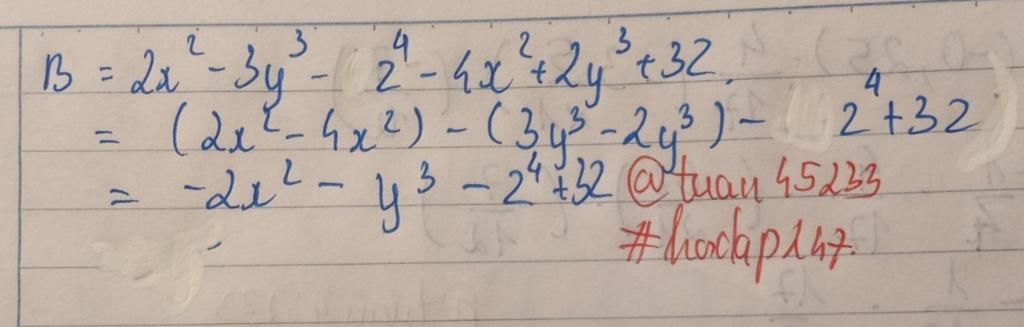 B = 2x² - 3y³ - z⁴ - 4x² + 2y³ + 3z.
= (2x² - 4x²) - (3y³ - 2y³) - z⁴ + 3z
= -2x² - y³ - z⁴ + 3z @tuan45233
#hoidap247.